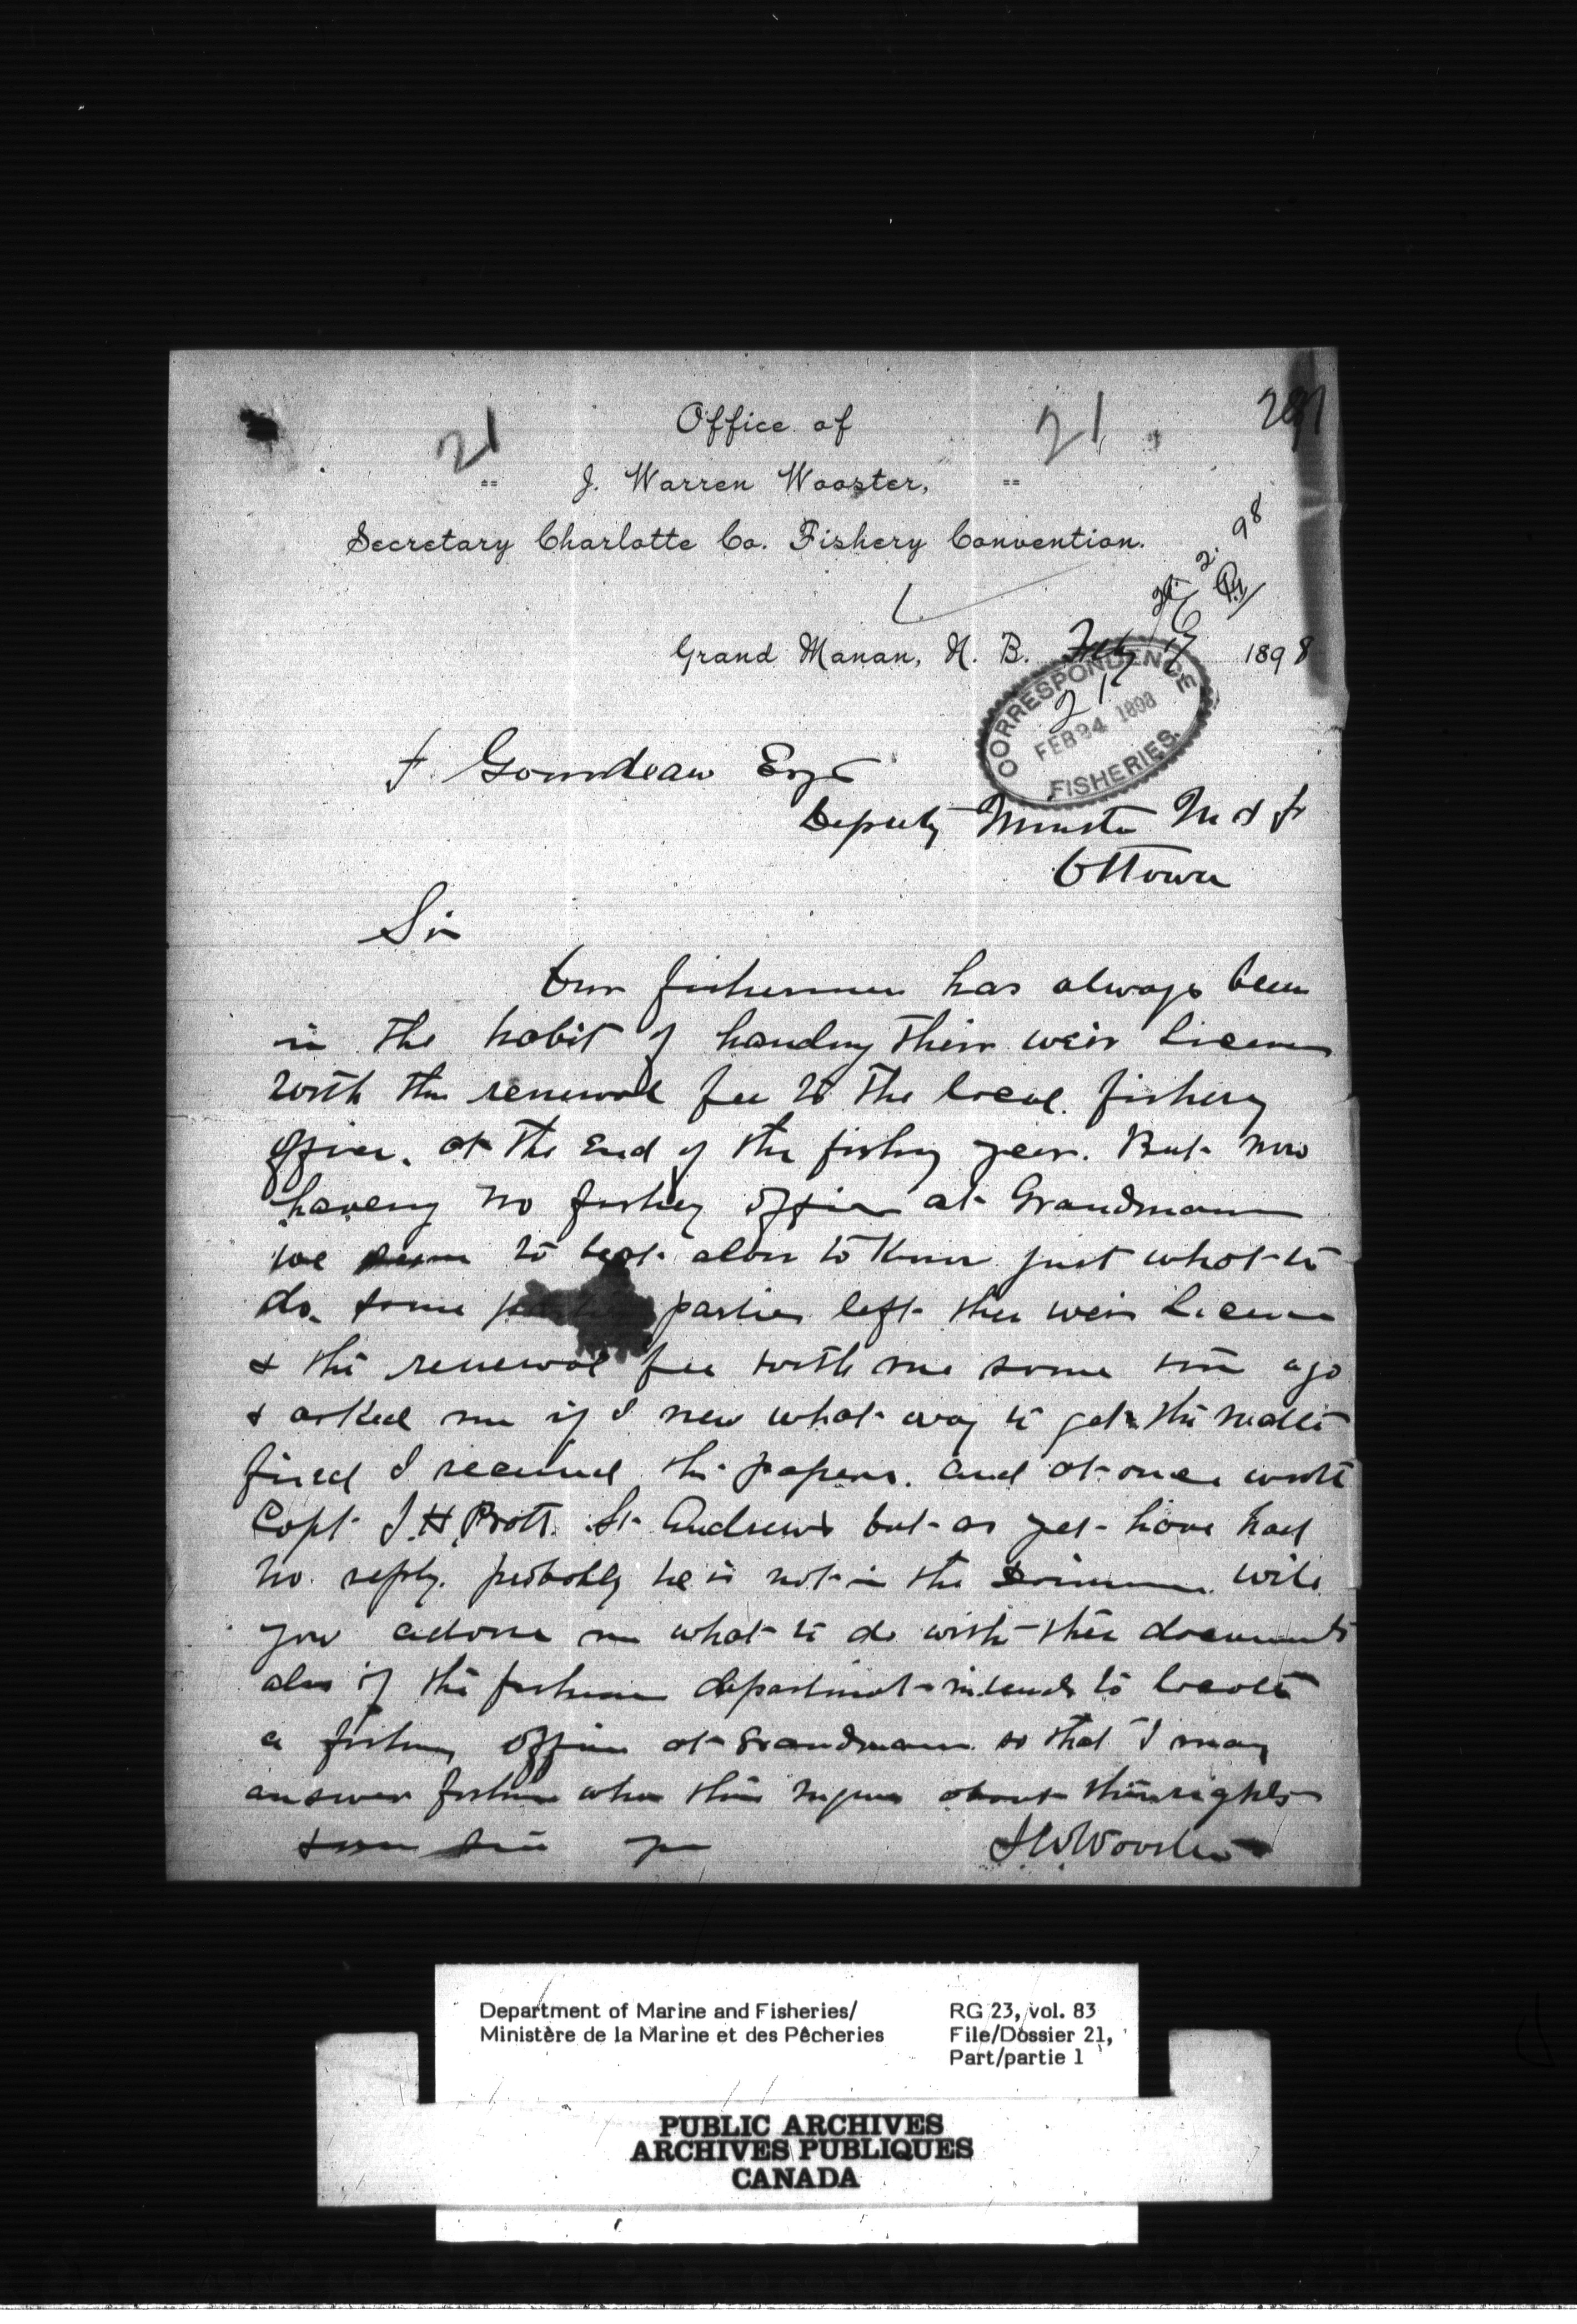 21
21
287
Office of
J. Warren Wooster,
Secretary Charlotte Co. Fishery Convention.
2. 98
Grand Manan, N. B. Feby 17 1898
CORRESPONDENCE
21
FEB 24 1898
FISHERIES
F. Gourdeau Esq
Deputy Minister M & F
Ottowa
Sir
Our fishermen has always been
in the habit of handing their weir Licens
with the renewal fee to the local fishery
officer. at the End of the fishing year. But now
haveing no fishery officer at Grandmanan
we seem to be at a loss to know just what to
do. some parties left their weir Licence
& the renewal fee with me some time ago
& asked me if I new what way to get the matter
fixed I received the papers. and at once wrote
Capt J. H. Pratt. St Andrews but as yet have had
no. reply. probably he is not in the will
you advise me what to do with their documents
also if the fisheries department intends to locate
a fishery officer at Grandmanan so that I may
answer when their about their rights
J W Wooster
Department of Marine and Fisheries/
Ministère de la Marine et des Pêcheries
RG 23, vol. 83
File/Dossier 21,
Part/partie 1
PUBLIC ARCHIVES
ARCHIVES PUBLIQUES
CANADA